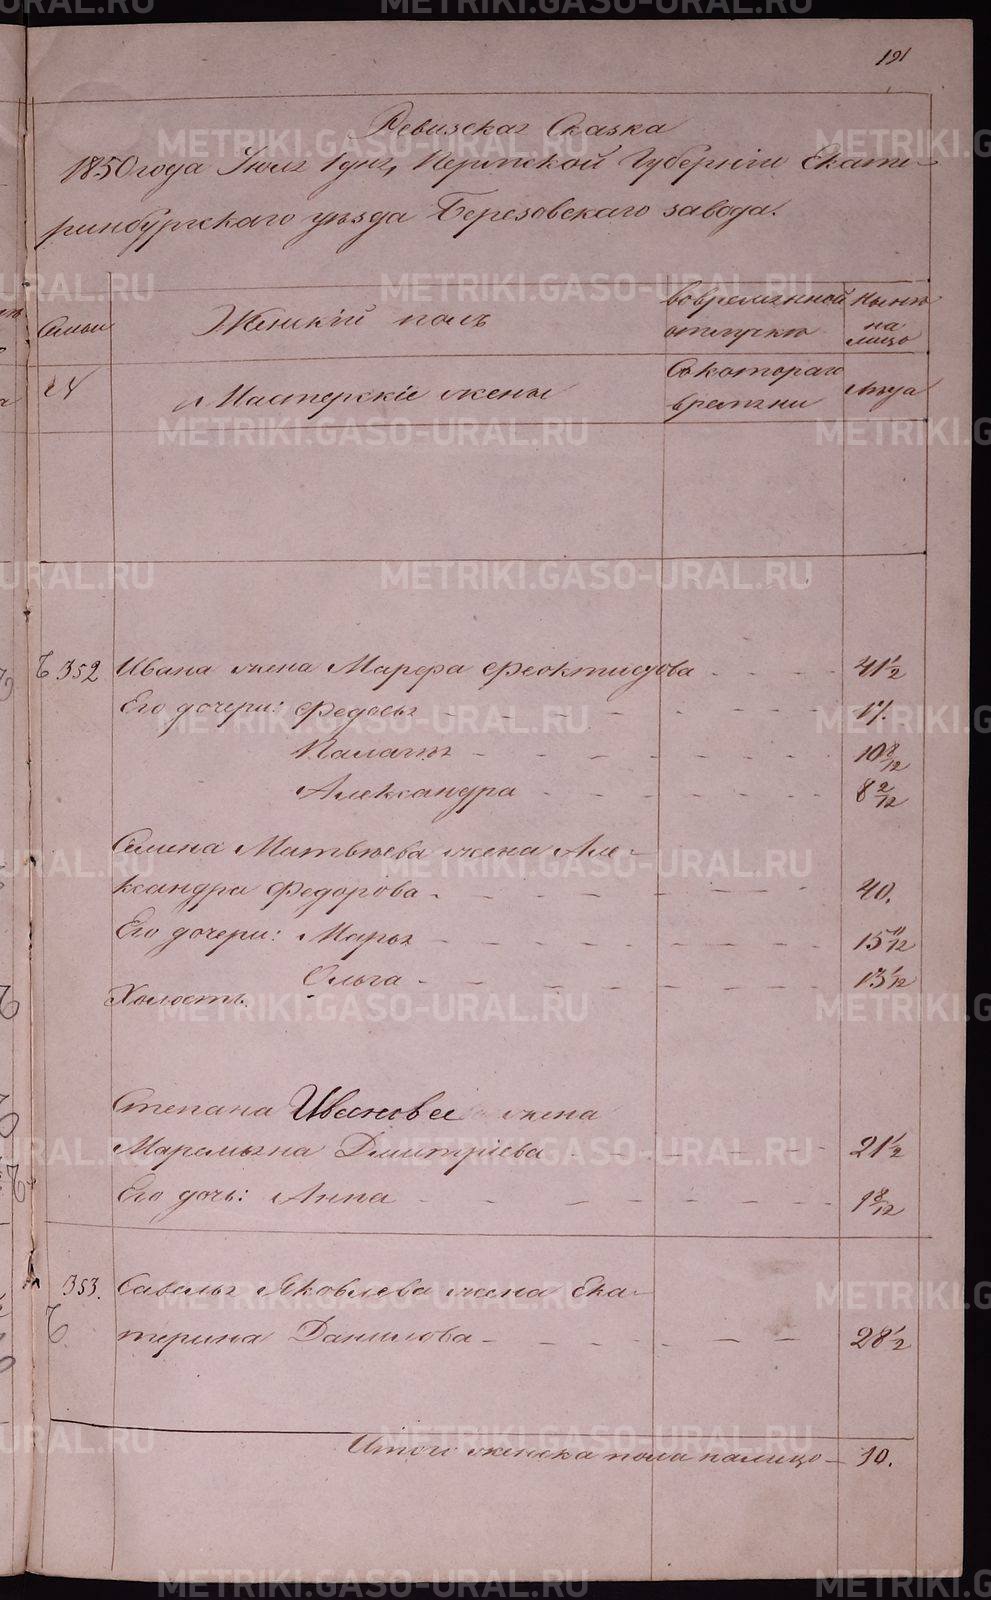 191
Ревизская Сказка
1850 года Июля 1 дня, Пермской Губернiи Екате-
ринбургскаго уѣзда Березовскаго завода.
Семьи
Женскiй полъ
во временной отлучкѣ
Нынѣ на лицо
Мастерскiе жены
Съ котораго времени
Лѣта
352 Ивана жена Марфа Феоктистова 41 1/2
Его дочери: Федосья 17.
Палагѣя 10 8/12
Александра 8 2/12
Семена Матвѣева жена Але-
ксандра Федорова 40.
Его дочери: Марья 15 11/12
Ольга 13 1/12
Холостъ.
Степана Иванова жена
Маремьяна Дмитрiева 21 1/2
Его дочь: Анна 1 8/12
353. Савелья Яковлева жена Ека-
терина Данилова 28 1/2
Итого женска пола налицо 10.
METRIKI.GASO-URAL.RU